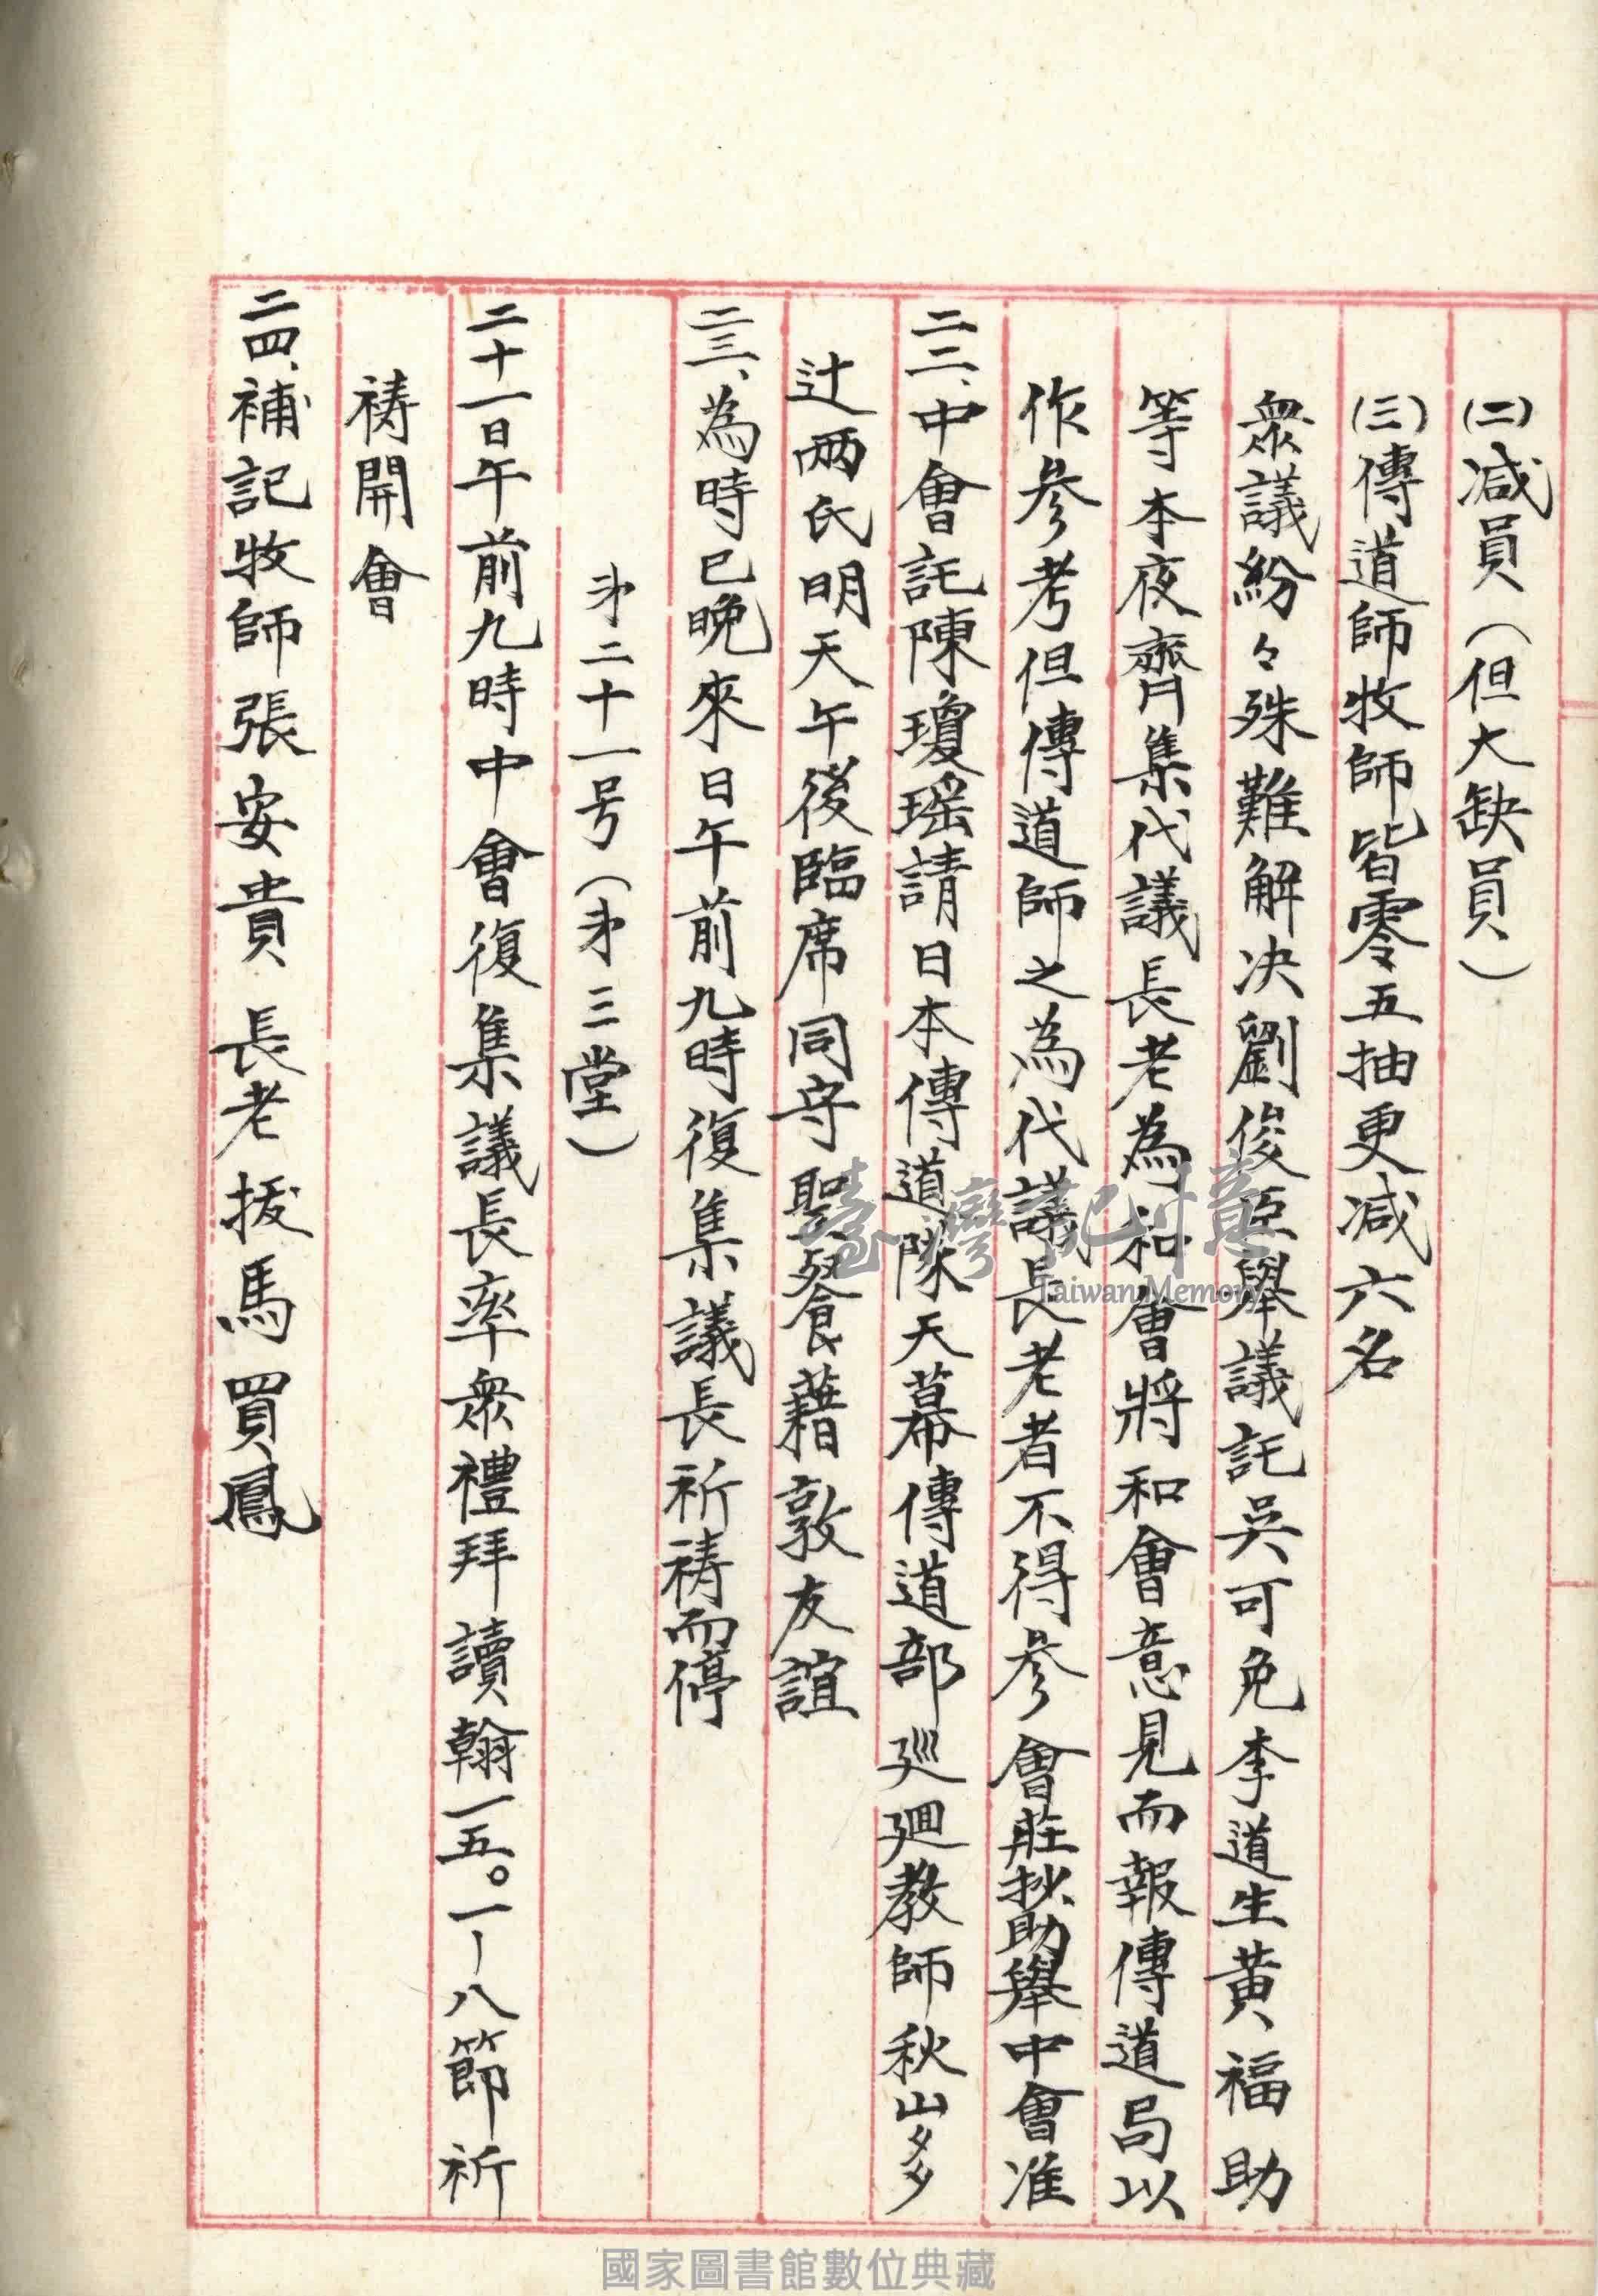 (二)減員(但大缺員、)
(三)傳道師牧師皆零五抽更減六名
衆議紛々殊難解決劉俊臣舉議託吳可免李道生黃福助
等本夜齊集代議長老為和會將和會意見而報傳道局以
作參考但傳道師之為代議長老者不得參會莊抄助舉中會准
二二、中會託陳瓊瑤請日本傳道隊天幕傳道部巡廻教師秋山
辻兩氏明天午後臨席同守聖餐藉敦友誼
二三、為時已晚來日午前九時復集議長祈禱而停
㐧二十一号(㐧三堂)
二十一日午前九時中會復集議長率衆禮拜讀翰一五。一ー八節祈
禱開會
二四、補記牧師張安貴長老拔馬買鳳
臺灣記憶
Taiwan Memory
國家圖書館數位典藏